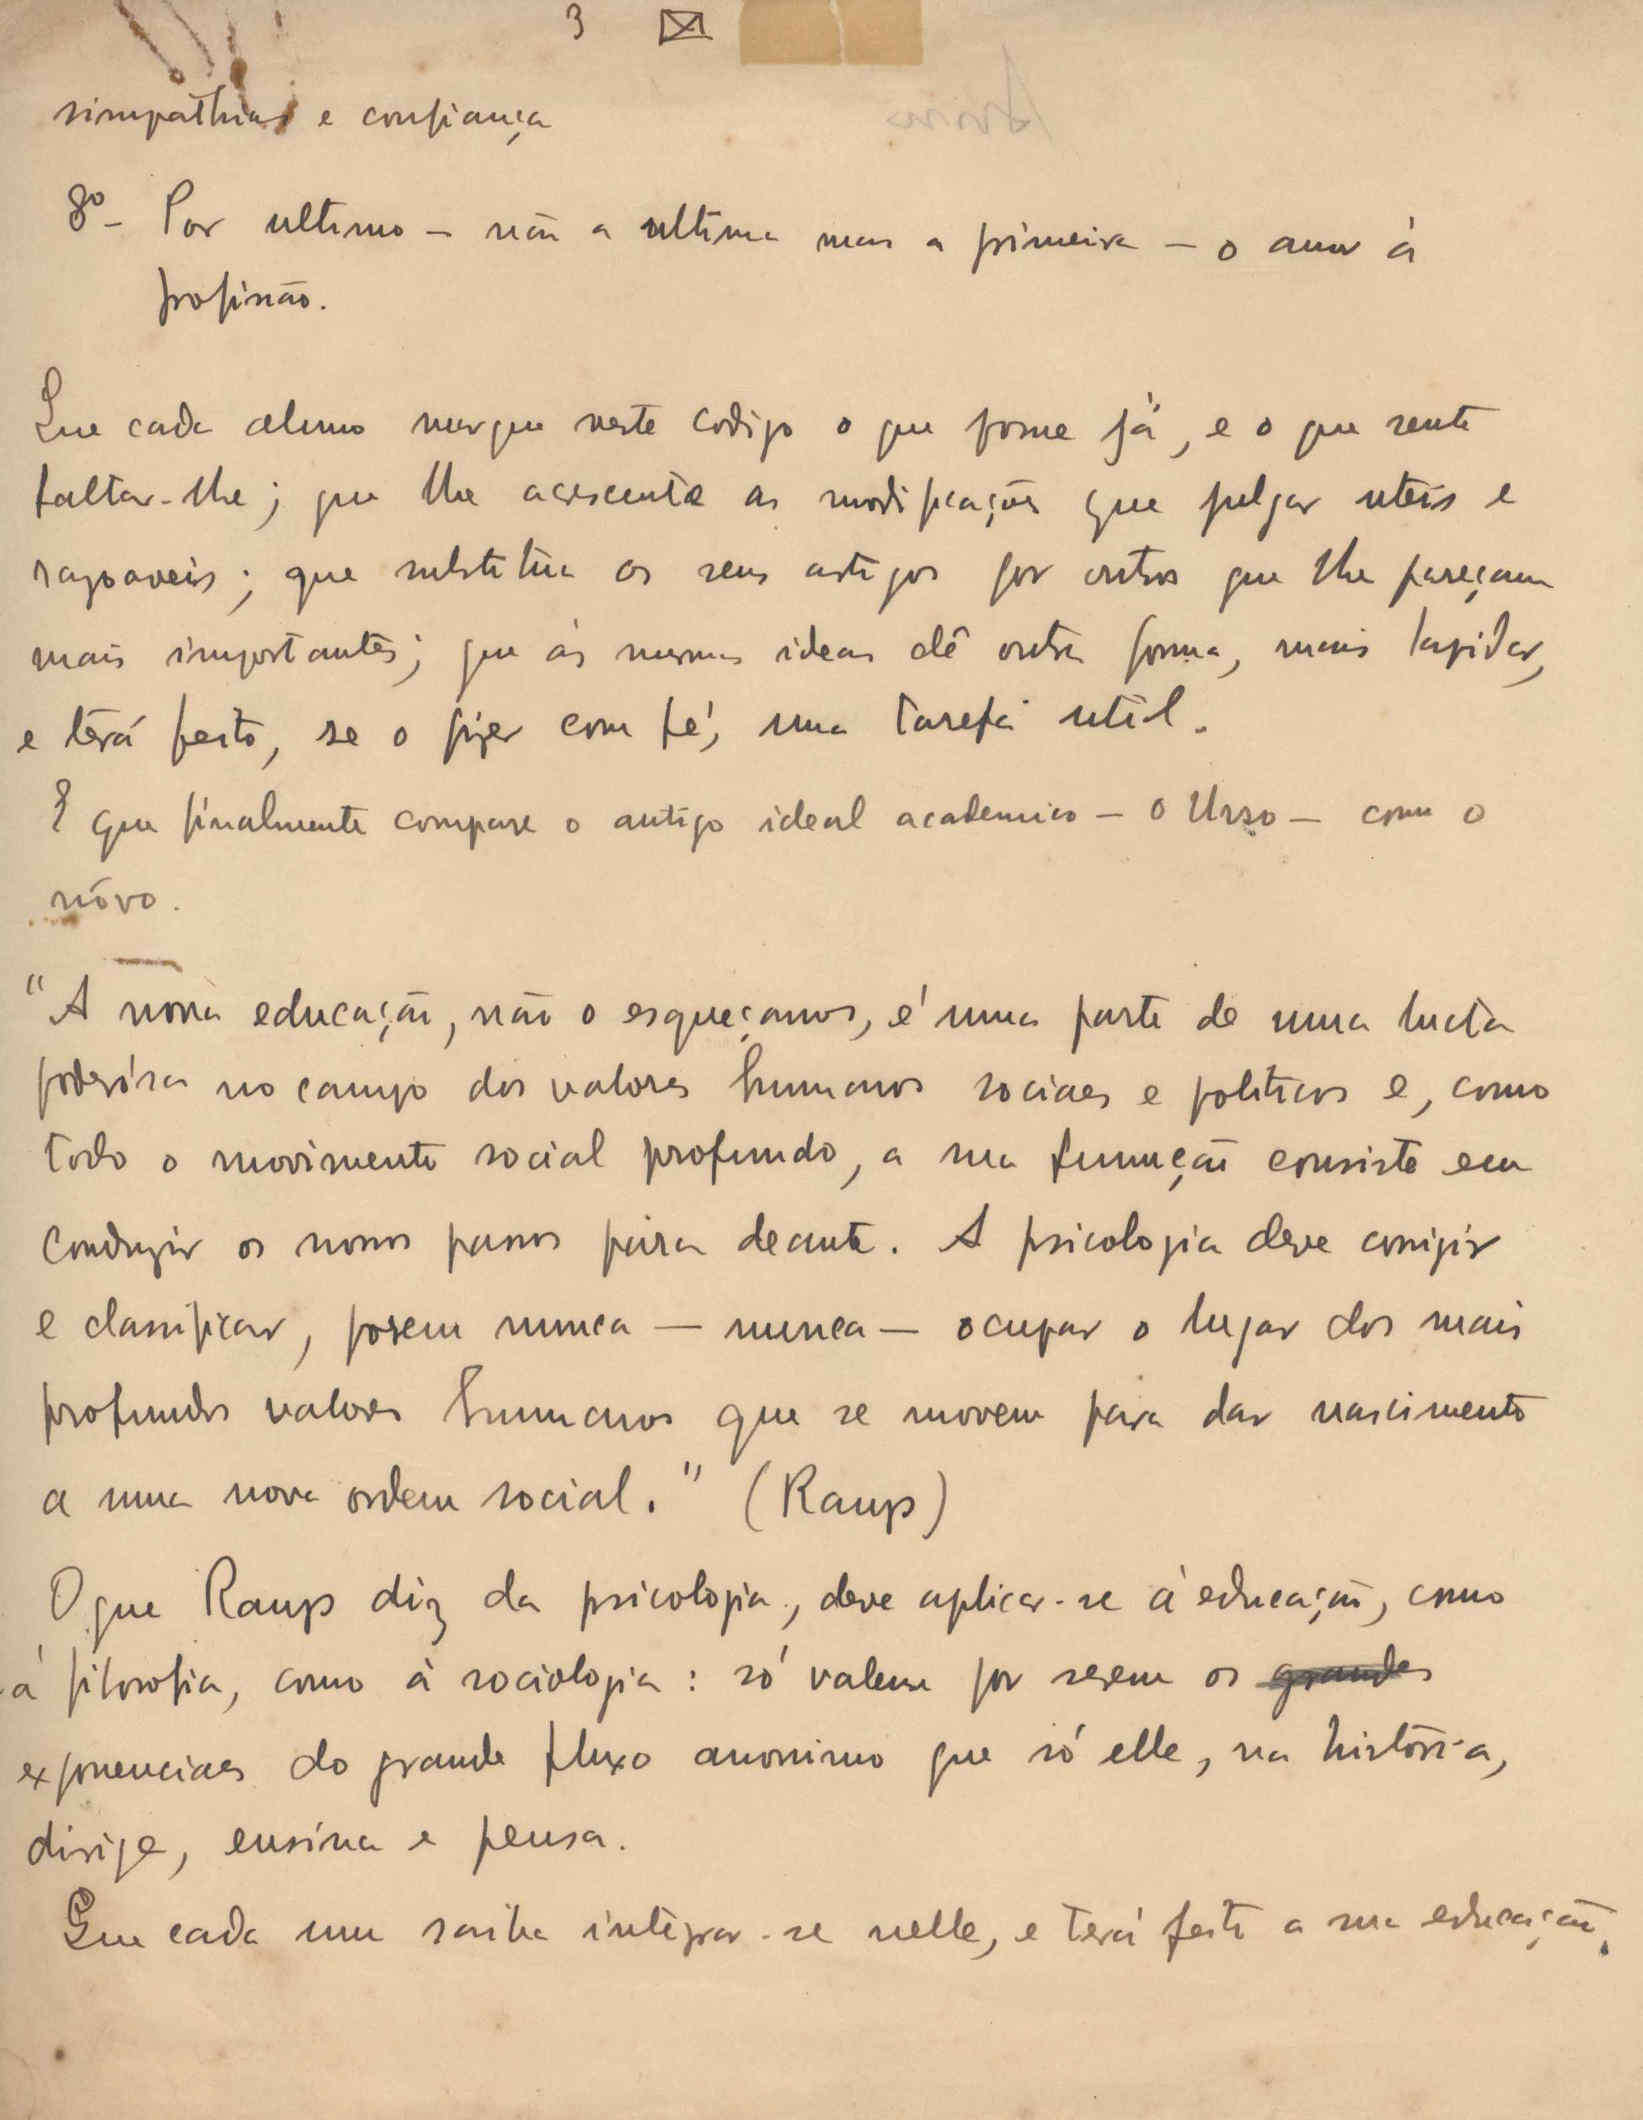 3
simpathias e confiança
8º - Por ultimo — não a ultima mas a primeira — o amor á
profissão.
Que cada aluno marque neste codigo o que possue já, e o que sente
faltar-lhe; que lhe acrescente as modificações que julgar uteis e
razoaveis; que substitúa os seus artigos por outros que lhe pareçam
mais importantes; que ás mesmas ideas dê outra forma, mais lapidar,
e terá feito, se o fizer com fé, uma tarefa util.
E que finalmente compare o antigo ideal academico — o Urso — com o
nóvo.
"A nova educação, não o esqueçamos, é uma parte de uma lucta
poderósa no campo dos valores humanos sociaes e politicos e, como
todo o movimento social profundo, a sua funcção consiste em
conduzir os nossos passos para deante. A psicologia deve corrigir
e classificar, porem nunca — nunca — ocupar o lugar dos mais
profundos valores humanos que se movem para dar nascimento
a uma nova ordem social." (Raup)
O que Raup diz da psicologia, deve aplicar-se á educação, como
á filosofia, como á sociologia: só valem por serem os grandes
exponenciaes do grande fluxo anonimo que só elle, na história,
dirige, ensina e pensa.
Que cada um saiba integrar-se nelle, e terá feito a sua educação.